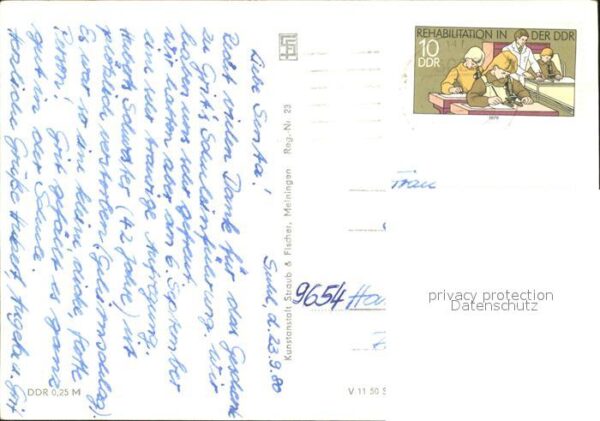 Suhl, d. 23.9.80
Liebe Senta!
Recht vielen Dank für das Geschenk
zu Grit's Schuleinführung. Wir
haben uns sehr gefreut.
Wir hatten aber am 6. September
eine sehr traurige Aufregung.
Huberts Schwester (42 Jahre) ist
plötzlich verstorben (Gehirnschlag).
Es war so eine kleine, dicke, nette
Person! Grit gefällt es ganz
gut in der Schule.
Herzliche Grüße Hubert, Angela u. Grit
DDR 0,25 M
Kunstanstalt Straub & Fischer, Meiningen Reg.-Nr. 23
V 11 50 S
REHABILITATION IN DER DDR
10
DDR
1979
Frau
9654 Ha
privacy protection
Datenschutz